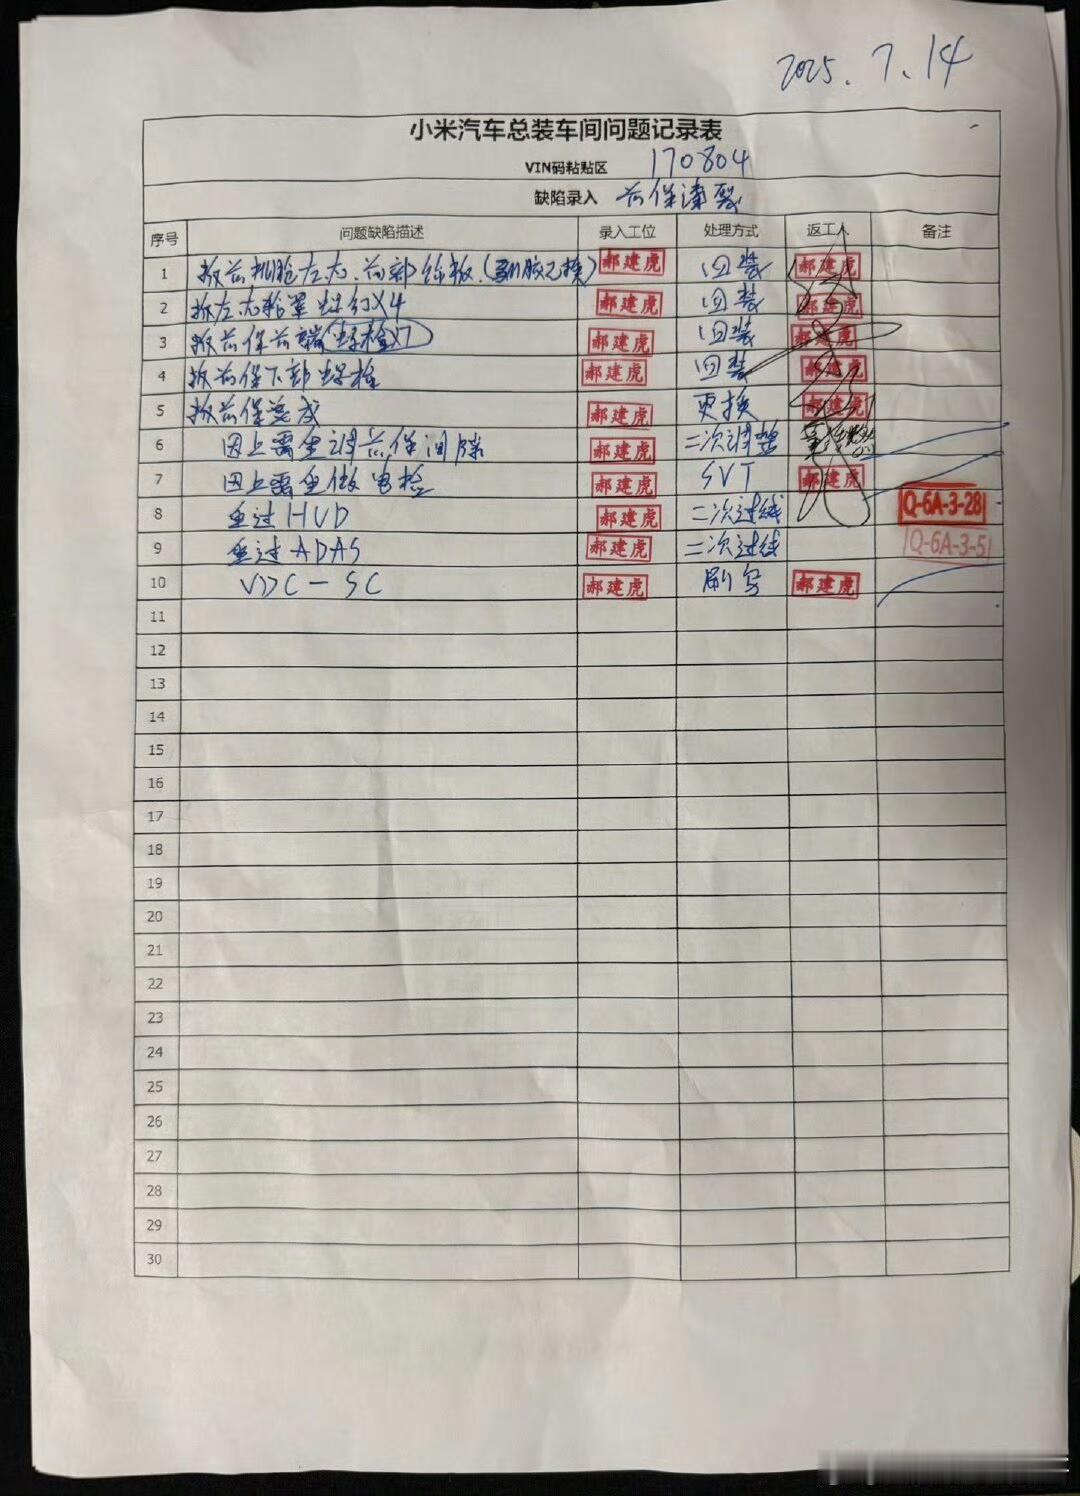 2025.7.14
小米汽车总装车间问题记录表
VIN码粘贴区 170804
缺陷录入 前保漆裂
序号 问题缺陷描述 录入工位 处理方式 返工人 备注
1 拆前机舱左右.前部饰板.( 胶已换) 郝建虎 回装 郝建虎
2 拆左.右轮罩螺钉X4 郝建虎 回装 郝建虎
3 拆前保前端螺栓X7 郝建虎 回装 郝建虎
4 拆前保下部螺栓 郝建虎 回装 郝建虎
5 拆前保总成 郝建虎 更换 郝建虎
6 因上需重调前保间隙 郝建虎 二次调整
7 因上需重做电检 郝建虎 SVT 郝建虎
8 重过HUD 郝建虎 二次过线 Q-6A-3-28
9 重过ADAS 郝建虎 二次过线 Q-6A-3-5
10 VDC-SC 郝建虎 刷写 郝建虎
11
12
13
14
15
16
17
18
19
20
21
22
23
24
25
26
27
28
29
30